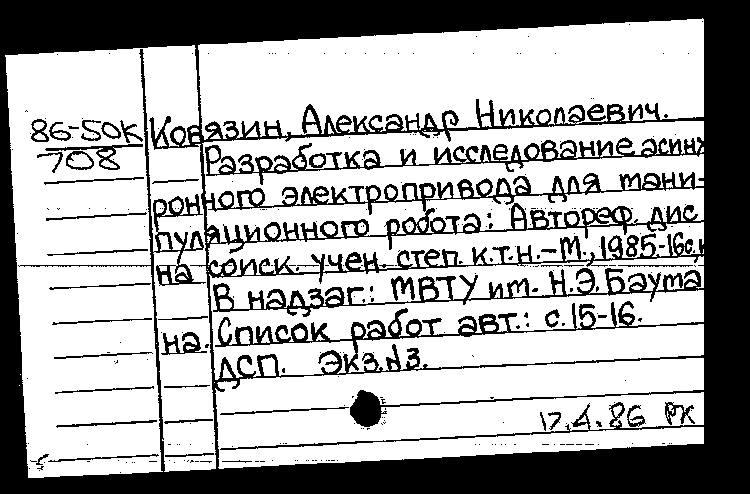 86-50к Ковязин, Александр Николаевич.
708 Разработка и исследование асинх
ронного электропривода для мани-
пуляционного робота: Автореф. дис
на соиск. учен. степ. к.т.н.-М., 1985.-16с,
В надзаг.: МВТУ им. Н.Э.Баума
на. Список работ авт.: с.15-16.
ДСП. Экз.№3.
17.4.86 РК